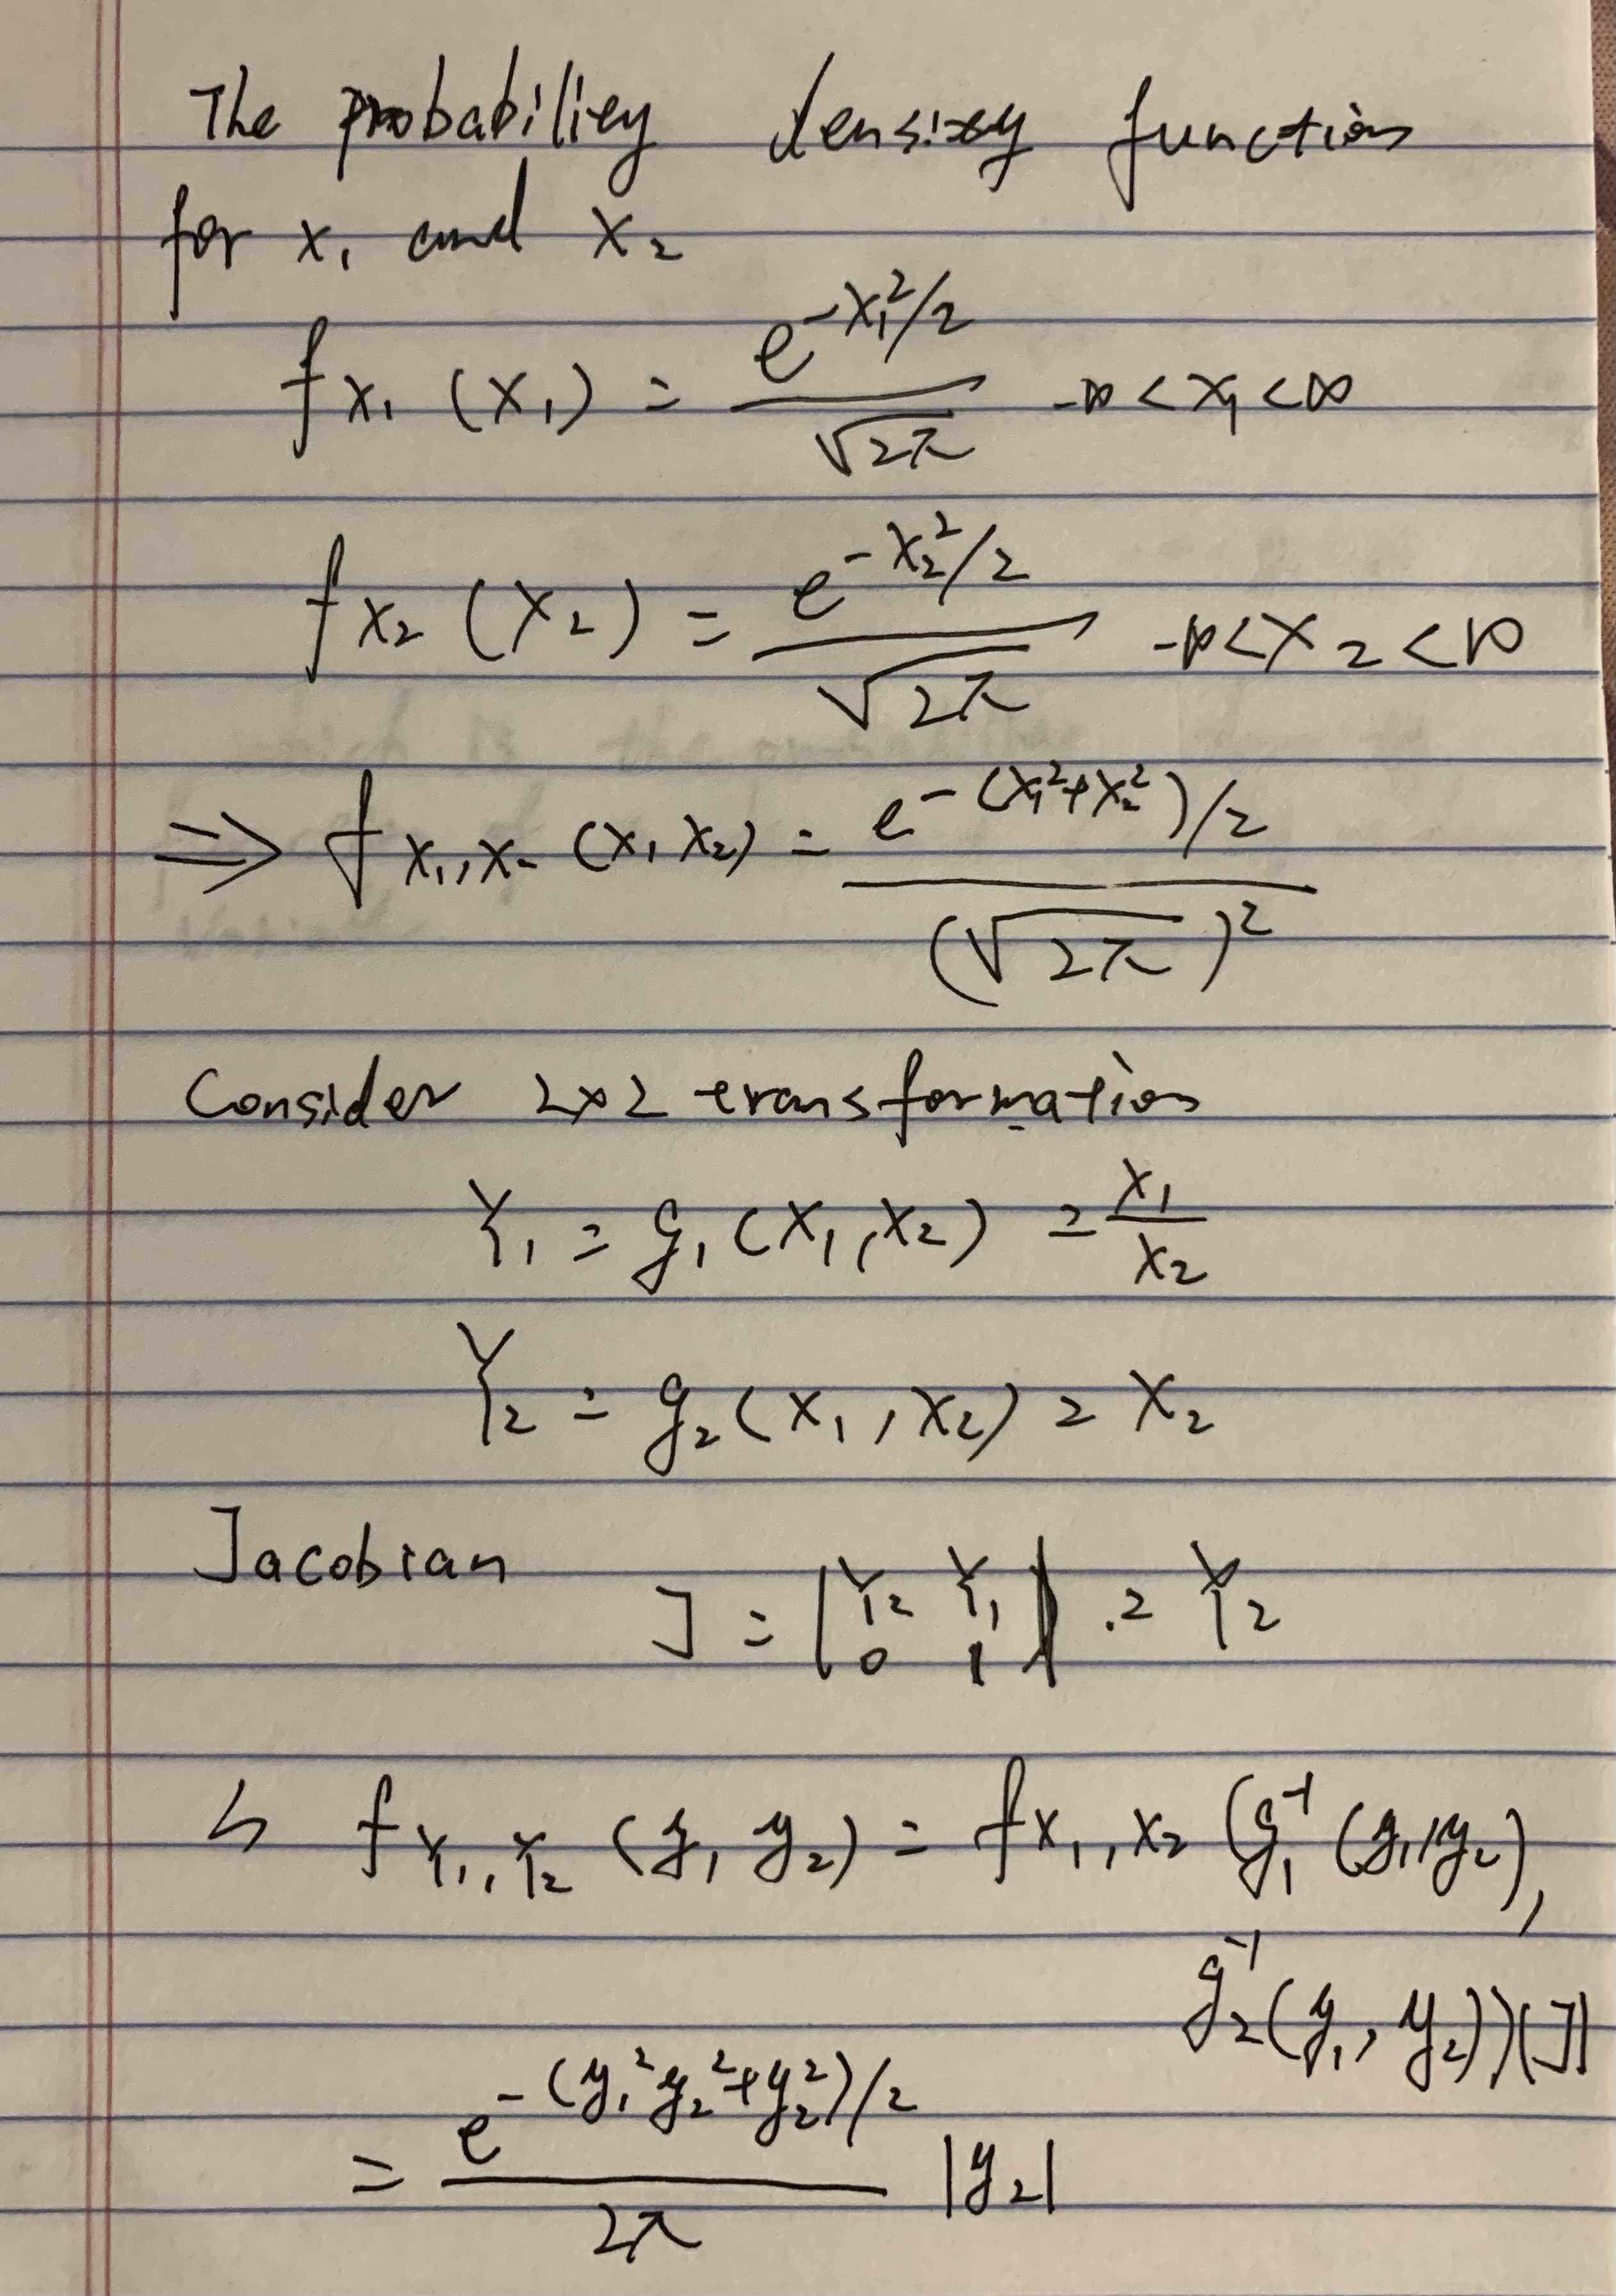 The probability density function
for x₁ and x₂
f x₁ (x₁) = e^{-x₁²/2} / √2π -∞ < x₁ < ∞
f x₂ (x₂) = e^{-x₂²/2} / √2π -∞ < x₂ < ∞
⇒ f x₁,x₂ (x₁ x₂) = e^{-(x₁²+x₂²)/2} / (√2π)²
Consider 2×2 transformation
Y₁ = g₁ (x₁,x₂) = x₁/x₂
Y₂ = g₂ (x₁,x₂) = x₂
Jacobian
J = |Y₂ Y₁
0 1| = Y₂
↳ f Y₁,Y₂ (y₁ y₂) = f x₁,x₂ (g₁⁻¹ (y₁,y₂),
g₂⁻¹(y₁, y₂))|J|
= e^{-(y₁²y₂²+y₂²)/2} / 2π |y₂|